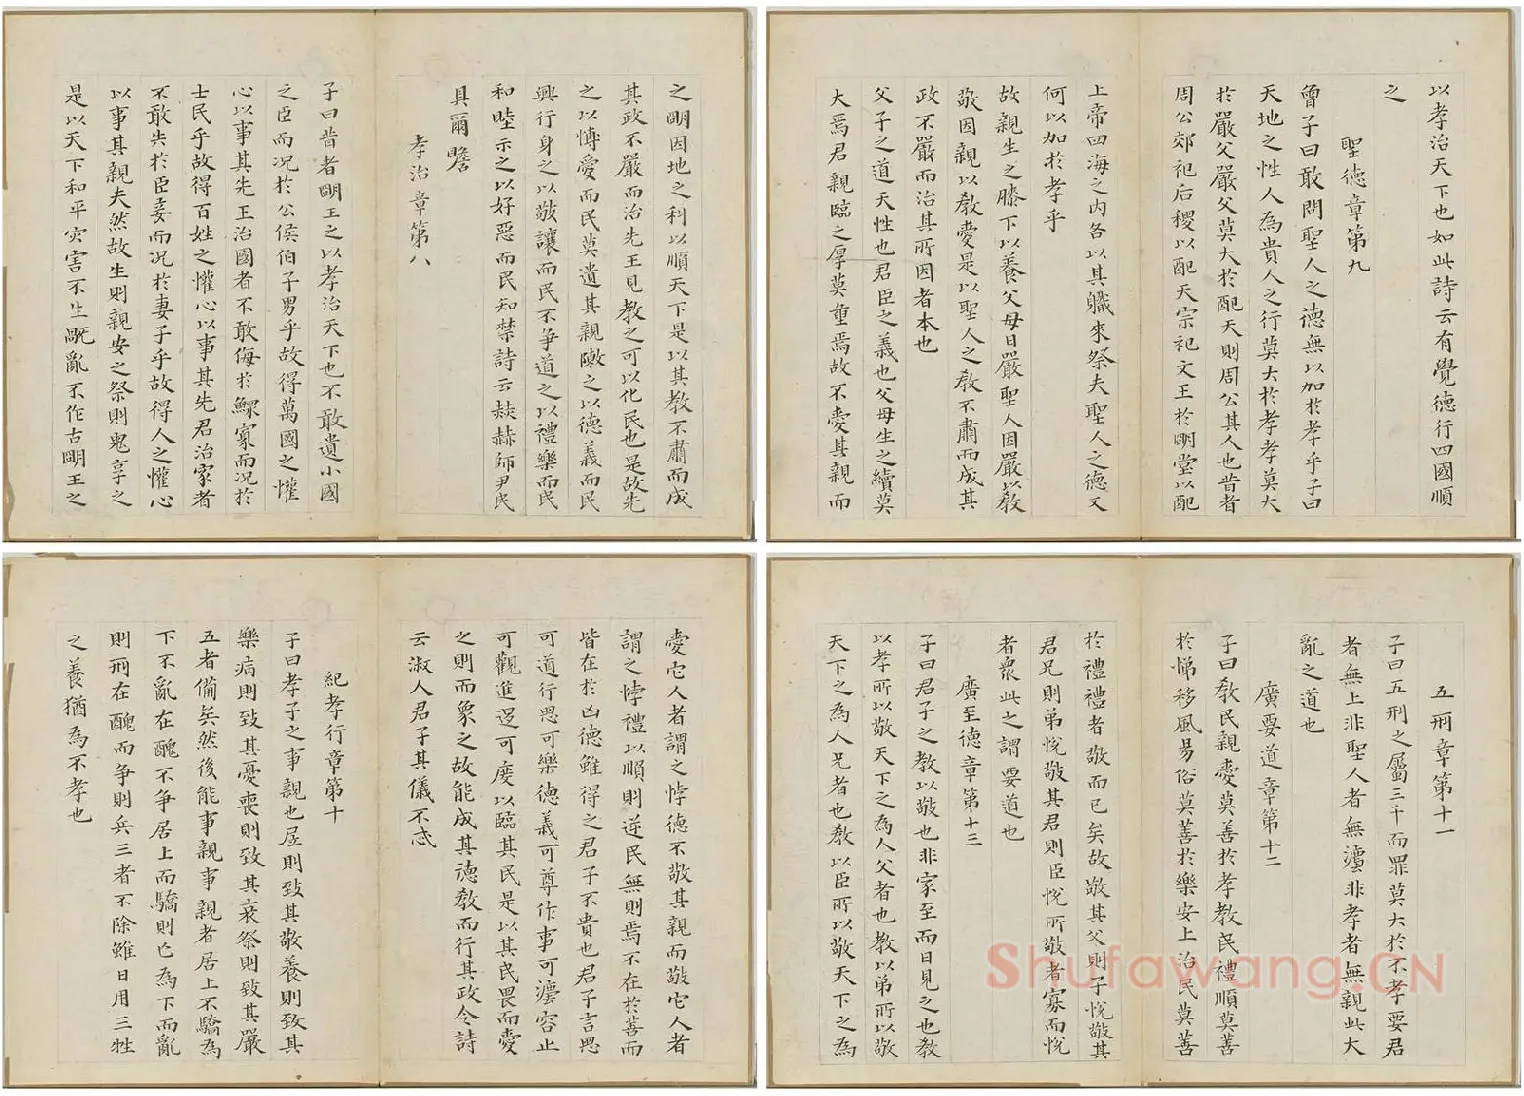 之明因地之利以順天下是以其教不肅而成
其政不嚴而治先王見教之可以化民也是故先
之以博愛而民莫遺其親陳之以德義而民
興行身之以敬讓而民不爭道之以禮樂而民
和睦示之以好惡而民知禁詩云赫赫師尹民
具爾瞻
孝治章第八
子曰昔者明王之以孝治天下也不敢遺小國
之臣而况於公侯伯子男乎故得萬國之懽
心以事其先王治國者不敢侮於鰥寡而况於
士民乎故得百姓之懽心以事其先君治家者
不敢失於臣妾而况於妻子乎故得人之懽心
以事其親夫然故生則親安之祭則鬼享之
是以天下和平灾害不生亂不作古明王之
以孝治天下也如此詩云有覺德行四國順
之
聖德章第九
曾子曰敢問聖人之德無以加於孝乎子曰
天地之性人為貴人之行莫大於孝孝莫大
於嚴父嚴父莫大於配天則周公其人也昔者
周公郊祀后稷以配天宗祀文王於明堂以配
上帝四海之内各以其軄來祭夫聖人之德又
何以加於孝乎
故親生之膝下以養父母日嚴聖人因嚴以敎
敬因親以敎愛是以聖人之敎不肅而成其
政不嚴而治其所因者本也
父子之道天性也君臣之義也父母生之續莫
大焉君親臨之厚莫重焉故不愛其親而
愛它人者謂之悖德不敬其親而敬它人者
謂之悖禮以順則逆民無則焉不在於善而
皆在於凶德雖得之君子不貴也君子言思
可道行思可樂德義可尊作事可灋容止
可觀進退可度以臨其民是以其民畏而愛
之則而象之故能成其德敎而行其政令詩
云淑人君子其儀不忒
紀孝行章第十
子曰孝子之事親也居則致其敬養則致其
樂病則致其憂喪則致其哀祭則致其嚴
五者備矣然後能事親事親者居上不驕為
下不亂在醜不爭居上而驕則亡為下而亂
則刑在醜而爭則兵三者不除雖日用三牲
之養猶為不孝也
五刑章第十一
子曰五刑之屬三千而罪莫大於不孝要君
者無上非聖人者無灋非孝者無親此大
亂之道也
廣要道章第十二
子曰敎民親愛莫善於孝教民禮順莫善
於悌移風易俗莫善於樂安上治民莫善
於禮禮者敬而已矣故敬其父則子悅敬其
君兄則弟悅敬其君則臣悅所敬者寡而悅
者衆此之謂要道也
廣至德章第十三
子曰君子之教以敬也非家至而日見之也敎
以孝所以敬天下之為人父者也教以弟所以敬
天下之為人兄者也敎以臣所以敬天下之為
Shufawang.CN